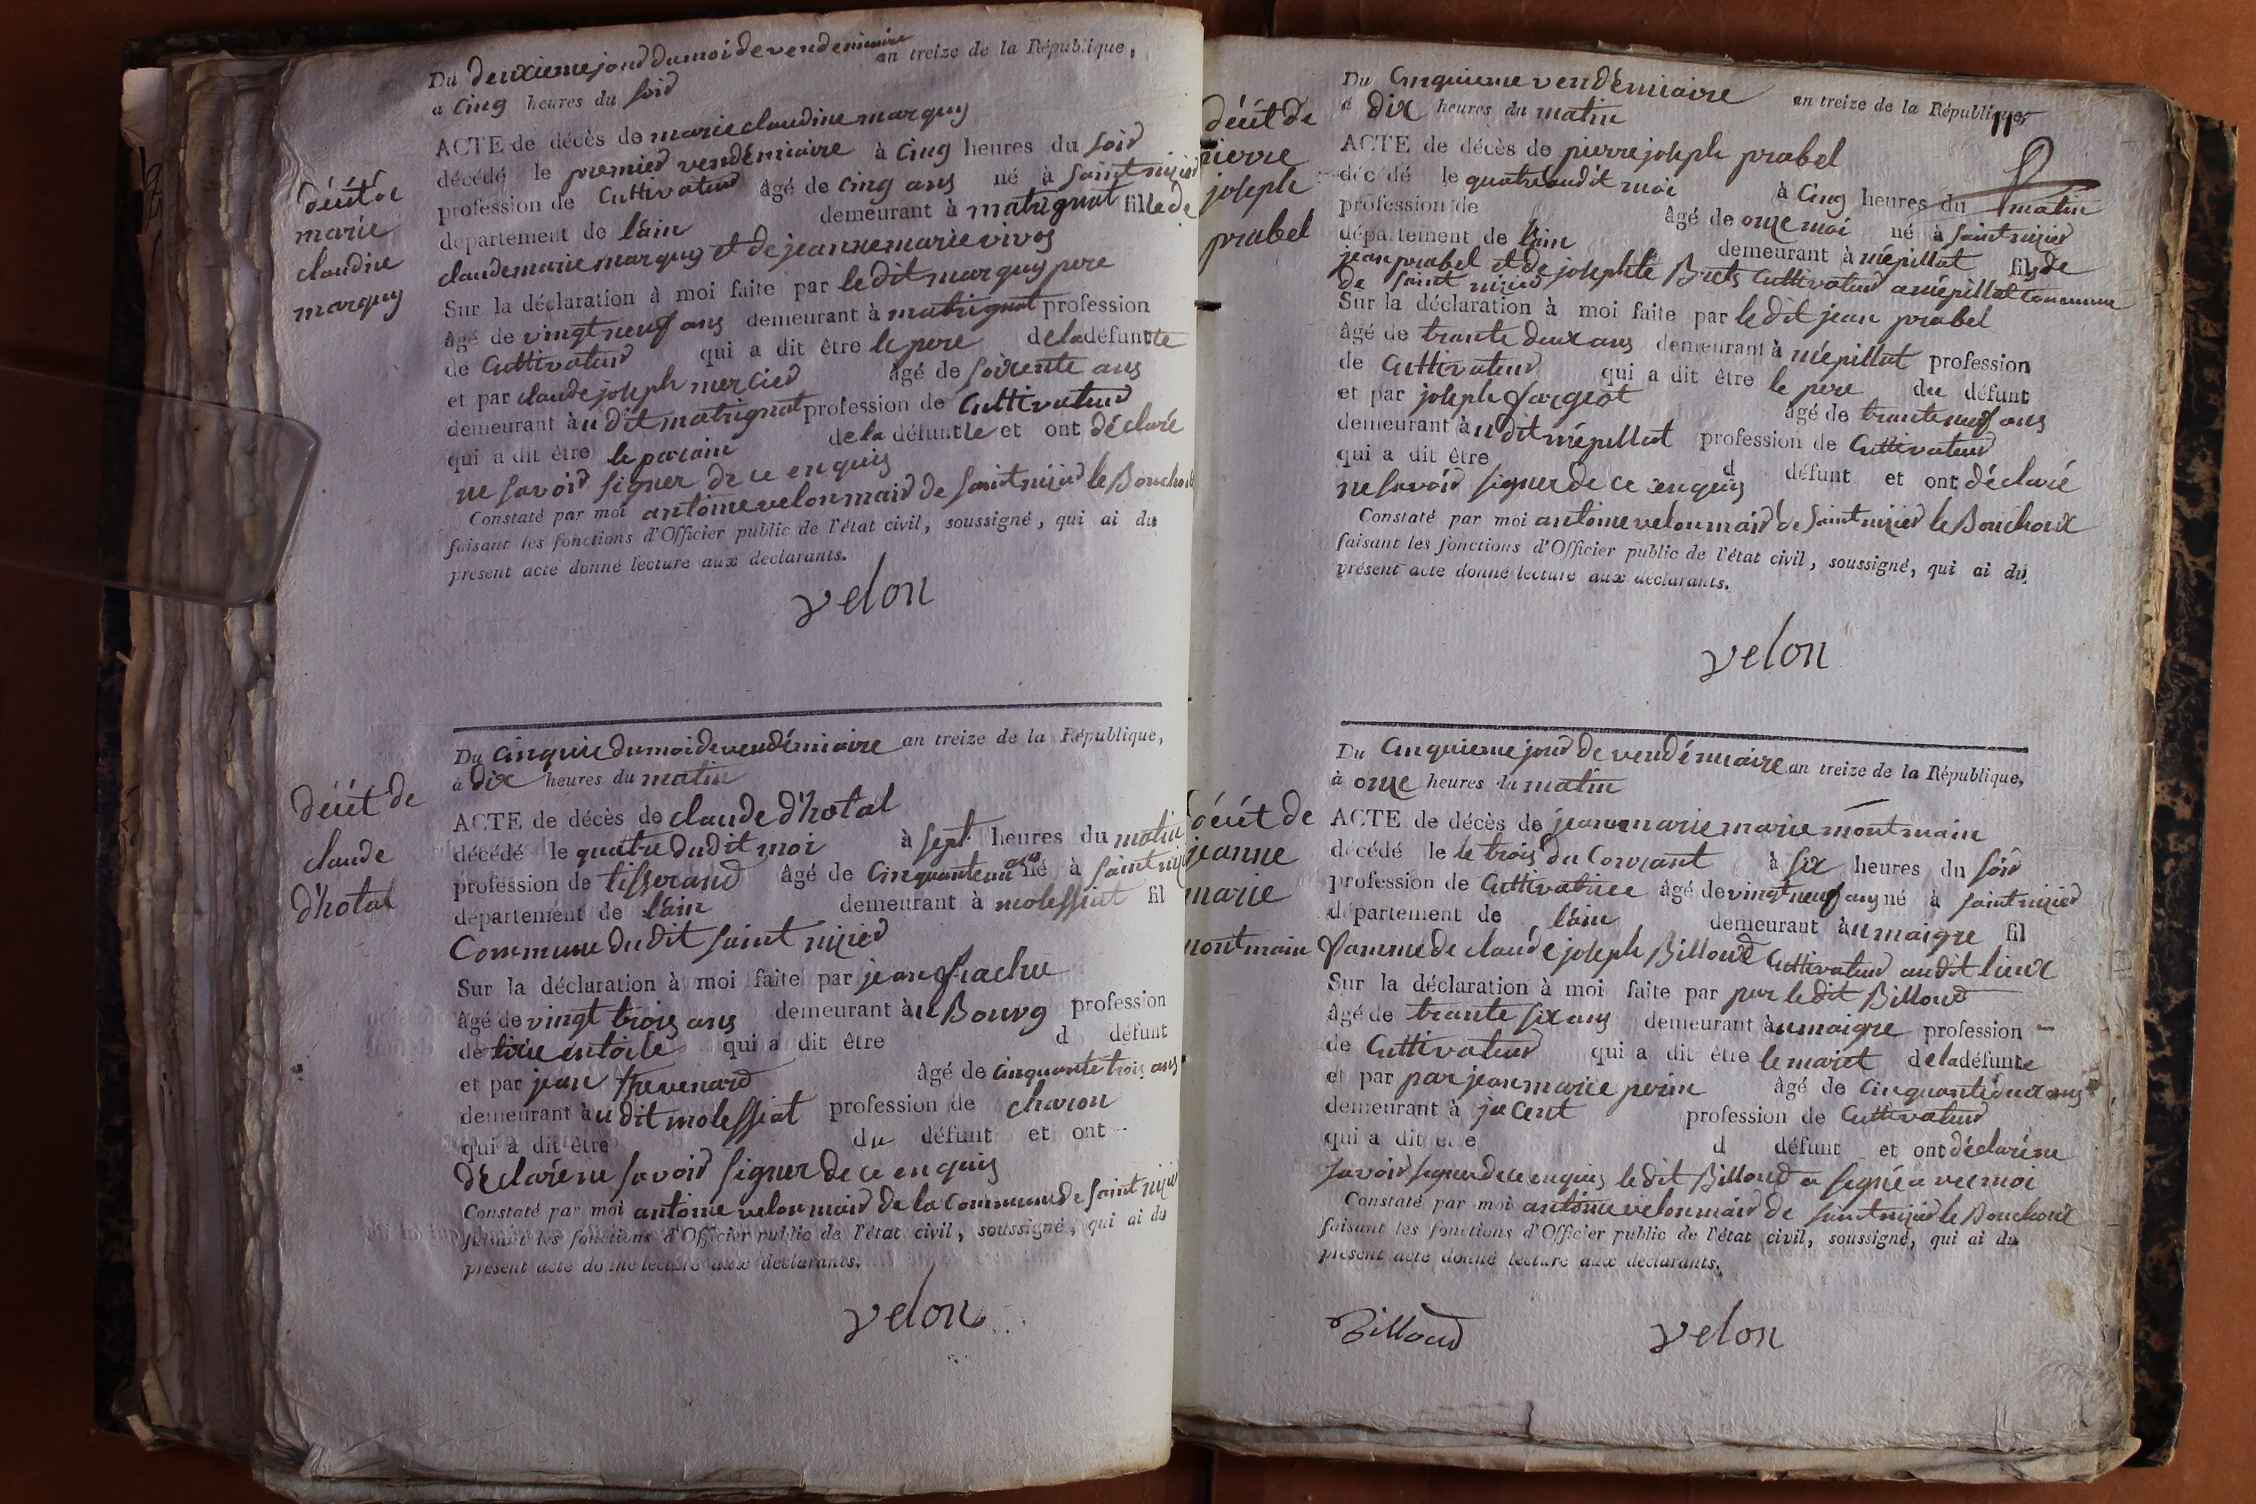 Du deuxieme jour du moi de vendemiaire an treize de la République,
a cinq heures du soir
décét de
marie
claudine
marquy
ACTE de décès de marie claudine marquy
décédé le premier vendémiaire à cinq heures du soir
profession de Cultivateur âgé de cinq ans né à saint nizier
département de l'ain demeurant à matrignat fille de
claude marie marquy et de jeanne marie vivos
Sur la déclaration à moi faite par le dit marquy pere
âgé de vingt neuf ans demeurant à matrignat profession
de Cultivateur qui a dit être le pere de la défuntte
et par claude joseph mercier âgé de soixente ans
demeurant à u dit matrignat profession de Cultivateur
qui a dit être le parain de la défuntte et ont déclaré
ne savoir signer de ce enquis
Constaté par moi antoine velon mair de saint nizier le Bouchoux
faisant les fonctions d'Officier public de l'état civil, soussigné, qui ai du
présent acte donné lecture aux déclarants.
velon
Du cinquie du moi de vendémiaire an treize de la République,
à dix heures du matin
décét de
claude
d'hotal
ACTE de décès de claude d'hotal
décédé le quatre du dit moi à sept heures du matin
profession de tisserand âgé de cinquante un ans né à saint nizi
département de l'ain demeurant à molessiat fil
Commune du dit saint nizier
Sur la déclaration à moi faite par jean fiachu
âgé de vingt trois ans demeurant à u Bourg profession
de tixie en toile qui a dit être d défunt
et par jean thevenard âgé de cinquante trois ans
demeurant à u dit molessiat profession de charon
qui a dit être du défunt et ont
déclaré ne savoir signer de ce enquis
Constaté par moi antoine velon mair de la Commune de saint nizie
faisant les fonctions d'Officier public de l'état civil, soussigné, qui ai du
présent acte donné lecture aux déclarants.
velon
Du cinquieme vendémiaire an treize de la République,
à dix heures du matin
décét de
pierre
joseph
prabel
ACTE de décès de pierre joseph prabel
décédé le quatre audit moi à cinq heures du matin
profession de âgé de onze moi né à saint nizier
département de l'ain demeurant à mépillat fils de
jean prabel et de josephte Buets Cultivateur a mépillat Commune
de saint nizier
Sur la déclaration à moi faite par le dit jean prabel
âgé de trante deux ans demeurant à mépillat profession
de Cultivateur qui a dit être le pere du défunt
et par joseph fargeot âgé de trante neuf ans
demeurant à u dit mépillat profession de Cultivateur
qui a dit être d défunt et ont déclaré
ne savoir signer de ce enquis
Constaté par moi antoine velon mair de saint nizier le Bouchoux
faisant les fonctions d'Officier public de l'état civil, soussigné, qui ai du
présent acte donné lecture aux déclarants.
velon
Du cinquieme jour de vendémiaire an treize de la République,
à onze heures du matin
décét de
jeanne
marie
montmain
ACTE de décès de jeanne marie marie montmain
décédé le le trois du Courant à six heures du soir
profession de Cultivatrice âgé de vingt neuf ans né à saint nizier
département de l'ain demeurant à u maigre fil
famme de claude joseph Billoud Cultivateur au dit lieux
Sur la déclaration à moi faite par par le dit Billoud
âgé de trante six ans demeurant à u maigre profession
de Cultivateur qui a dit être le mariet de la défunte
et par par jean marie perin âgé de cinquante deux ans
demeurant à jacent profession de Cultivateur
qui a dit être d défunt et ont déclaré ne
savoir signer de ce enquis le dit Billoud a signé a vec moi
Constaté par moi antoine velon mair de saint nizier le Bouchoux
faisant les fonctions d'Officier public de l'état civil, soussigné, qui ai du
présent acte donné lecture aux déclarants.
Billoud velon